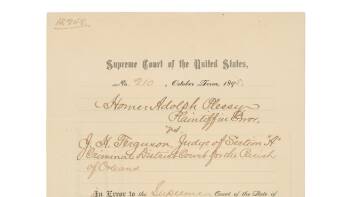 15,248.
Supreme Court of the United States,
No. 210, October Term, 1895.
Homer Adolph Plessy
Plaintiff in Error,
vs.
J. H. Ferguson, Judge of Section "A"
Criminal District Court for the Parish
of Orleans
In Error to the Supreme Court of the State of